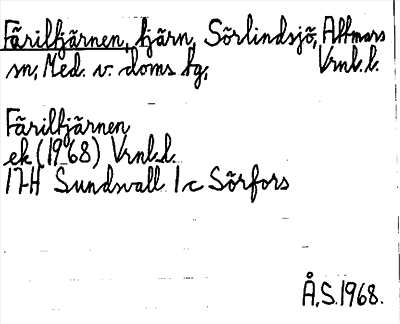 Färiltjärnen, tjärn, Sörlindsjö, Attmars
sn, Med. v. doms hg, Vrnl.l.
Färiltjärnen
ek (1968) Vrnl.d.
17H Sundsvall 1c Sörfors
Å.S.1968.